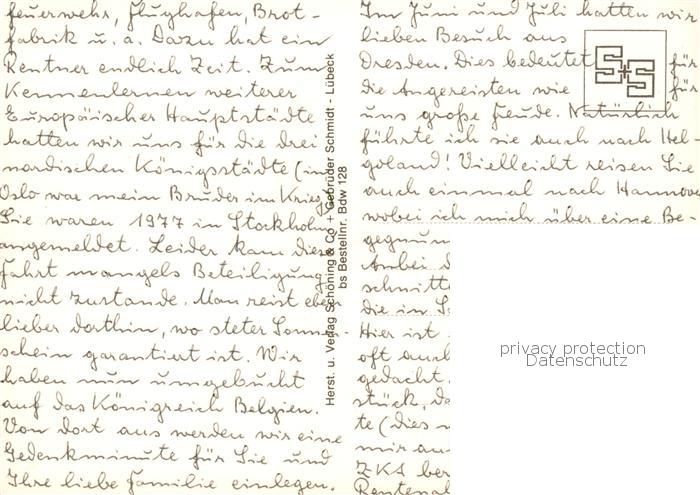 feuerwehr, Flughafen, Brot-
fabrik u. a. Dazu hat ein
Rentner endlich Zeit. Zum
Kennenlernen weiterer
Europäischer Hauptstädte
hatten wir uns für die drei
nordischen Königsstädte (in
Oslo war mein Bruder im Krieg)
Sie waren 1977 in Stockholm
angemeldet. Leider kam diese
Fahrt mangels Beteiligung
nicht zustande. Man reist eben
lieber dorthin, wo steter Sonnen-
schein garantiert ist. Wir
haben nun umgebucht
auf das Königreich Belgien.
Von dort aus werden wir eine
Gedenkminute für Sie und
Ihre liebe Familie einlegen.
Herst. u. Verlag Schöning & Co + Gebrüder Schmidt - Lübeck
bs Bestellnr. Bdw 128
Im Juni und Juli hatten wir
lieben Besuch aus
Dresden. Dies bedeutet für
die Angereisten wie für
uns große Freude. Natürlich
führte ich sie auch nach Hel-
goland! Vielleicht reisen Sie
auch einmal nach Hannover
wobei ich mich über eine Be-
gegnun
Anbei d
schnitt
die in S
Hier ist
oft auch
gedacht.
stück, da
te (dies
mir au
ZKA ber
Rentenal
S+S
privacy protection
Datenschutz